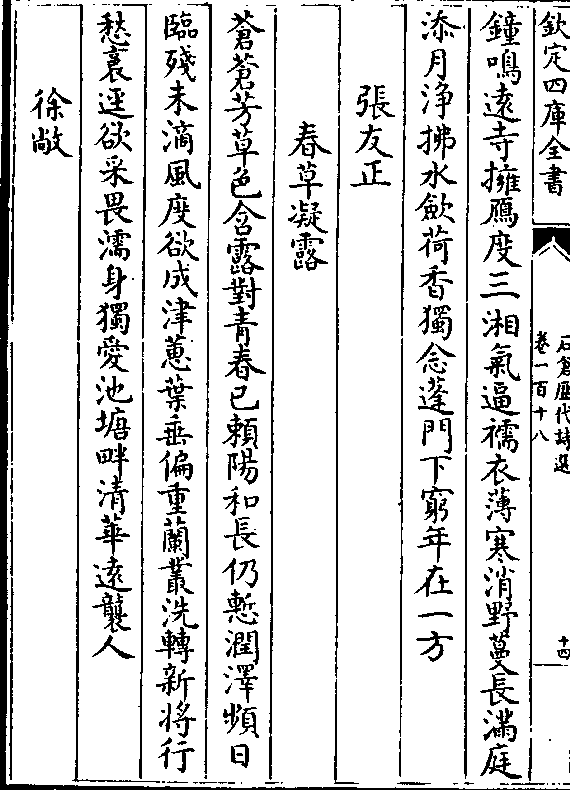 欽定四庫全書
石倉歷代詩選
卷一百十八
十四
鐘鳴遠寺擁鴈度三湘氣逼襦衣薄寒消野蔓長滿庭
添月浄拂水歛荷香獨念蓬門下窮年在一方
張友正
春草凝露
蒼蒼芳草色含露對青春已頼陽和長仍慙潤澤頻日
臨殘未滴風度欲成津蕙葉垂偏重蘭叢洗轉新將行
愁裛逕欲采畏濡身獨愛池塘畔清華遠襲人
徐敞